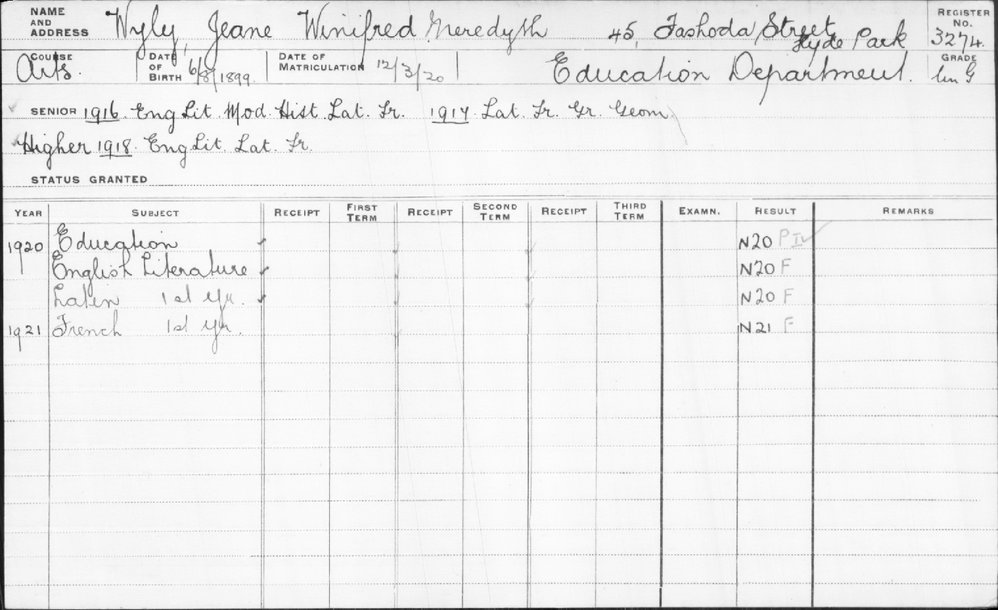 NAME AND ADDRESS Wyly, Jeane Winifred Meredyth 45, Fashoda Street Hyde Park REGISTER No. 3274
COURSE Arts. DATE OF BIRTH 6/8/1899. DATE OF MATRICULATION 12/3/20 Education Department. GRADE
SENIOR 1916. Eng Lit. Mod. Hist. Lat. Fr. 1917. Lat. Fr. Gr. Geom.
Higher 1918. Eng Lit. Lat. Fr.
STATUS GRANTED
YEAR SUBJECT RECEIPT FIRST TERM RECEIPT SECOND TERM RECEIPT THIRD TERM EXAMN. RESULT REMARKS
1920 Education ✓ ✓ ✓ N20 P II ✓
English Literature ✓ ✓ ✓ N20 F
Latin 1st Yr. ✓ ✓ ✓ N20 F
1921 French 1st Yr. N21 F